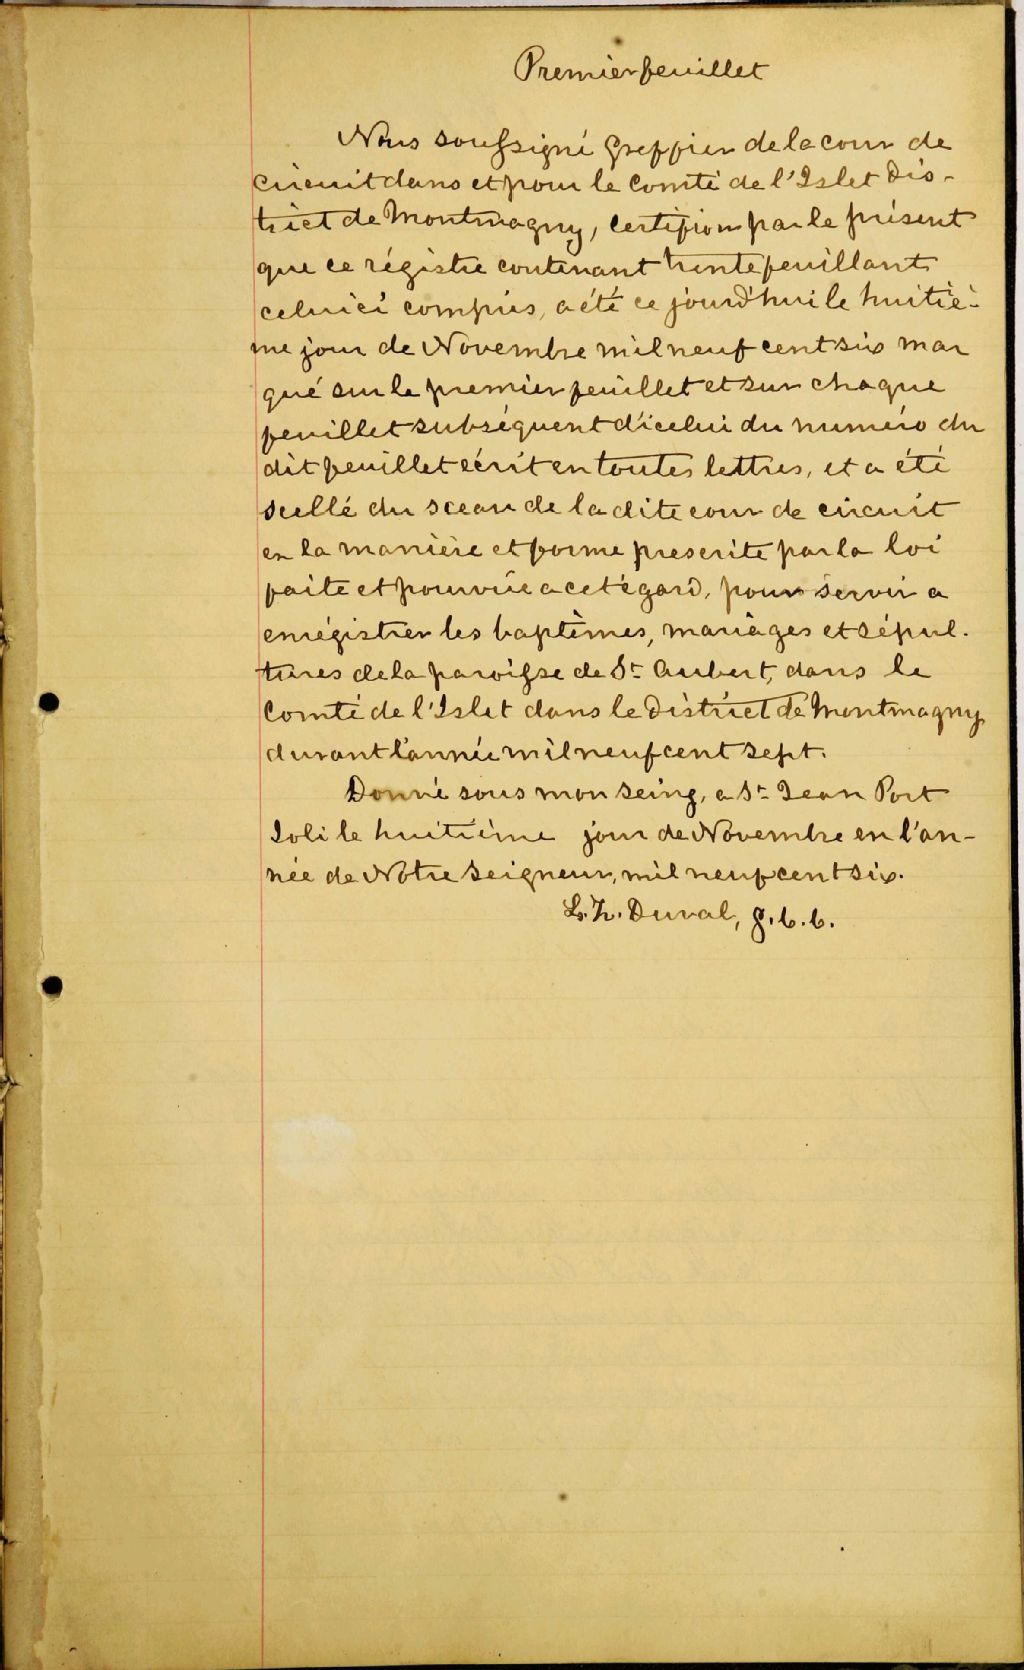 Premier feuillet
Nous soussigné Greffier de la cour de
circuit dans et pour le Comté de l'Islet Dis-
trict de Montmagny, Certifions par le présent
que ce régistre contenant trente feuillants
celui ci compris, a été ce jourd'hui le huitiè-
me jour de Novembre mil neuf cent six mar
qué sur le premier feuillet et sur chaque
feuillet subséquent d'icelui du numéro du
dit feuillet écrit en toutes lettres, et a été
scellé du sceau de la dite cour de circuit
en la manière et forme prescrite par la loi
faite et pourvûe a cet égard, pour servir a
enrégistrer les baptêmes, mariages et sépul-
tures de la paroisse de St Aubert, dans le
Comté de l'Islet dans le District de Montmagny
durant l'année mil neuf cent sept.
Donné sous mon seing, a St Jean Port
Joli le huitième jour de Novembre en l'an-
née de Notre Seigneur, mil neuf cent six.
Duval, g.c.c.